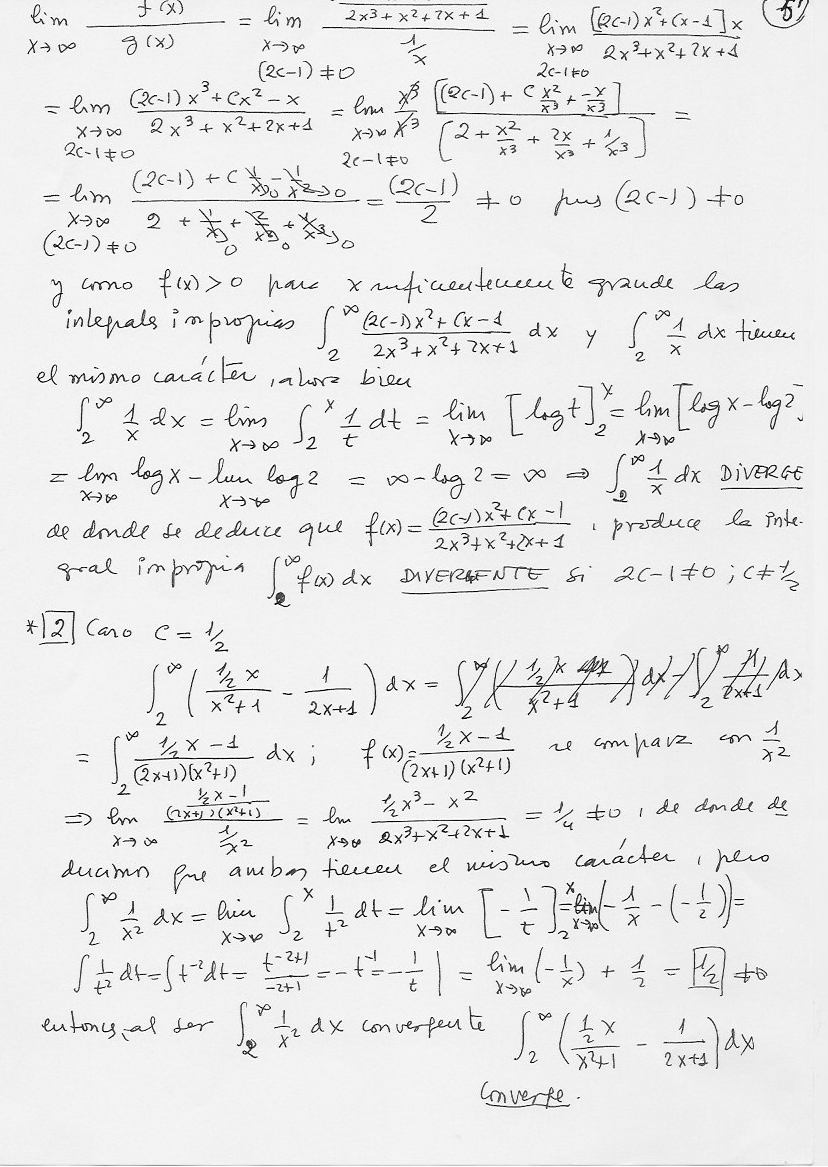 lim f(x)/g(x) = lim /(2x³+x²+2x+1) / 1/x = lim [(2c-1)x²+cx-1]x / 2x³+x²+2x+1 5'
x→∞ x→∞ (2c-1)≠0 x→∞ 2c-1≠0
= lim (2c-1)x³+cx²-x / 2x³+x²+2x+1 = lim x³/x³ [(2c-1)+c x²/x³ + -x/x³] / [2+x²/x³+2x/x³+1/x³] =
x→∞ 2c-1≠0 x→∞ 2c-1≠0
= lim (2c-1)+c 1/x→0 - 1/x²→0 / 2+1/x→0+2/x²→0+1/x³→0 = (2c-1)/2 ≠ 0 pues (2c-1)≠0
x→∞ (2c-1)≠0
y como f(x)>0 para x suficientemente grande las
integrales impropias ∫₂^∞ (2c-1)x²+cx-1 / 2x³+x²+2x+1 dx y ∫₂^∞ 1/x dx tienen
el mismo carácter, ahora bien
∫₂^∞ 1/x dx = lim x→∞ ∫₂^x 1/t dt = lim x→∞ [log t]₂^x = lim x→∞ [log x - log 2]
= lim x→∞ log x - lim x→∞ log 2 = ∞ - log 2 = ∞ ⇒ ∫₂^∞ 1/x dx DIVERGE
de donde se deduce que f(x) = (2c-1)x²+cx-1 / 2x³+x²+2x+1, produce la inte-
gral impropia ∫₂^∞ f(x) dx DIVERGENTE si 2c-1≠0 ; c≠1/2
* 2 Caso c = 1/2
∫₂^∞ (1/2 x / x²+1 - 1 / 2x+1) dx =
= ∫₂^∞ 1/2 x - 1 / (2x+1)(x²+1) dx ; f(x) = 1/2 x - 1 / (2x+1)(x²+1) se compara con 1/x²
⇒ lim x→∞ 1/2 x - 1 / (2x+1)(x²+1) / 1/x² = lim x→∞ 1/2 x³ - x² / 2x³+x²+2x+1 = 1/4 ≠ 0, de donde de
ducimos que ambas tienen el mismo carácter, pero
∫₂^∞ 1/x² dx = lim x→∞ ∫₂^x 1/t² dt = lim x→∞ [-1/t]₂^x = lim x→∞ (-1/x - (-1/2)) =
∫ 1/t² dt = ∫ t⁻² dt = t⁻²⁺¹/-2+1 = -t⁻¹ = -1/t | = lim x→∞ (-1/x) + 1/2 = 1/2 ≠ ∞
entonces, al ser ∫₂^∞ 1/x² dx convergente ∫₂^∞ (1/2 x / x²+1 - 1 / 2x+1) dx
Converge.